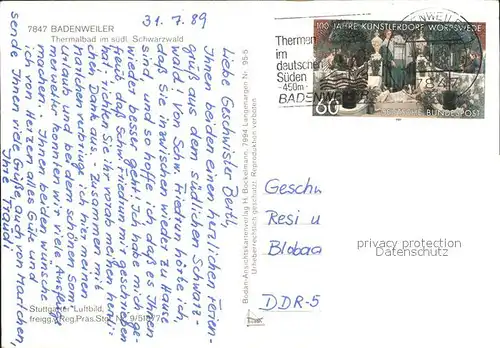 31.7.89
7847 BADENWEILER
Thermalbad im südl. Schwarzwald
Liebe Geschwister Berth
Ihnen beiden einen herzlichen Ferien-
gruß aus dem südlichen Schwarz-
wald! Von Schw. Friedrun hörte ich,
daß Sie inzwischen wieder zu Hause
sind, und so hoffe ich, daß es Ihnen
wieder besser geht. Ich habe mich ge-
freut, daß Schw. Friedrun mit geschrieben
hat; richten Sie ihr vorab meinen herzli-
chen Dank aus. Zusammen mit
Marlichen verbringe ich hier meinen
Urlaub und bei dem schönen Som-
merwetter kann man viele Ausflüge
machen. Ihnen beiden wünsche
ich von Herzen alles Gute und
sende Ihnen viele Grüße, auch von Marlichen,
Ihre Traudl
Stuttgarter Luftbild,
freigg. Reg.Präs.Stgt. Nr. 9/
Bodan-Ansichtskartenverlag H. Bockelmann, 7994 Langenargen Nr. 95-5
Urheberrechtlich geschützt. Reproduktion verboten
Thermen
im
deutschen
Süden
-450m-
BADENWEILER
100 JAHRE KÜNSTLERDORF WORPSWEDE
60
DEUTSCHE BUNDESPOST
Geschw
Resi u
DDR-5
privacy protection
Datenschutz